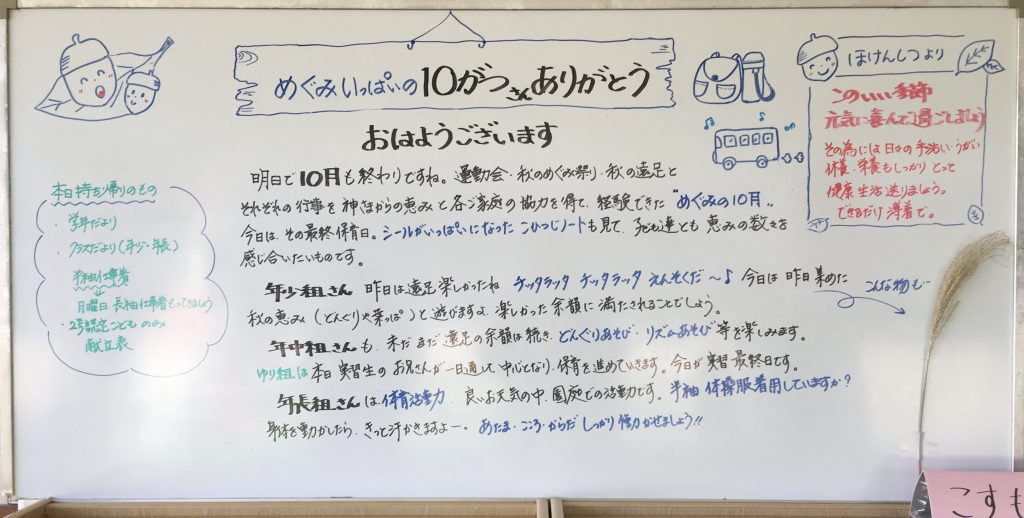 めぐみいっぱいの10がつさんありがとう
おはようございます
明日で10月も終わりですね。運動会・秋のめぐみ祭り・秋の遠足と
それぞれの行事を神さまからの恵みと各ご家庭の協力を得て、経験できた"めぐみの10月"。
今日は、その最終保育日。シールがいっぱいになったこひつじノートも見て、子ども達とも恵みの数々を
感じ合いたいものです。
年少組さん 昨日は遠足楽しかったね チックタック チックタック えんそくだ〜♪ 今日は昨日集めた
秋の恵み(どんぐりや葉っぱ)と遊びますよ。楽しかった余韻に満たされることでしょう。
年中組さんも、まだまだ遠足の余韻は続き、どんぐりあそび・リズムあそび等を楽しみます。
ゆり組は本日実習生のお兄さんが一日通して中心となり、保育を進めていきます。今日が実習最終日です。
年長組さんは体育活動 良いお天気の中、園庭での活動です。半袖体操服着用していますか?
身体を動かしたら、きっと汗かきますよー。あたま・こころ・からだ しっかり働かせましょう!!
こんな物も…
本日持ち帰りのもの
・学年だより
・クラスだより(年少・年長)
・半袖仕事着
↓
月曜日 長袖仕事着もってきましょう
・2号認定こどものみ
献立表
ほけんしつより
このいい季節
元気に喜んで過ごしましょう
その為には日々の手洗い・うがい
休養・栄養もしっかりとって
健康生活送りましょう。
できるだけ薄着で。
こすも